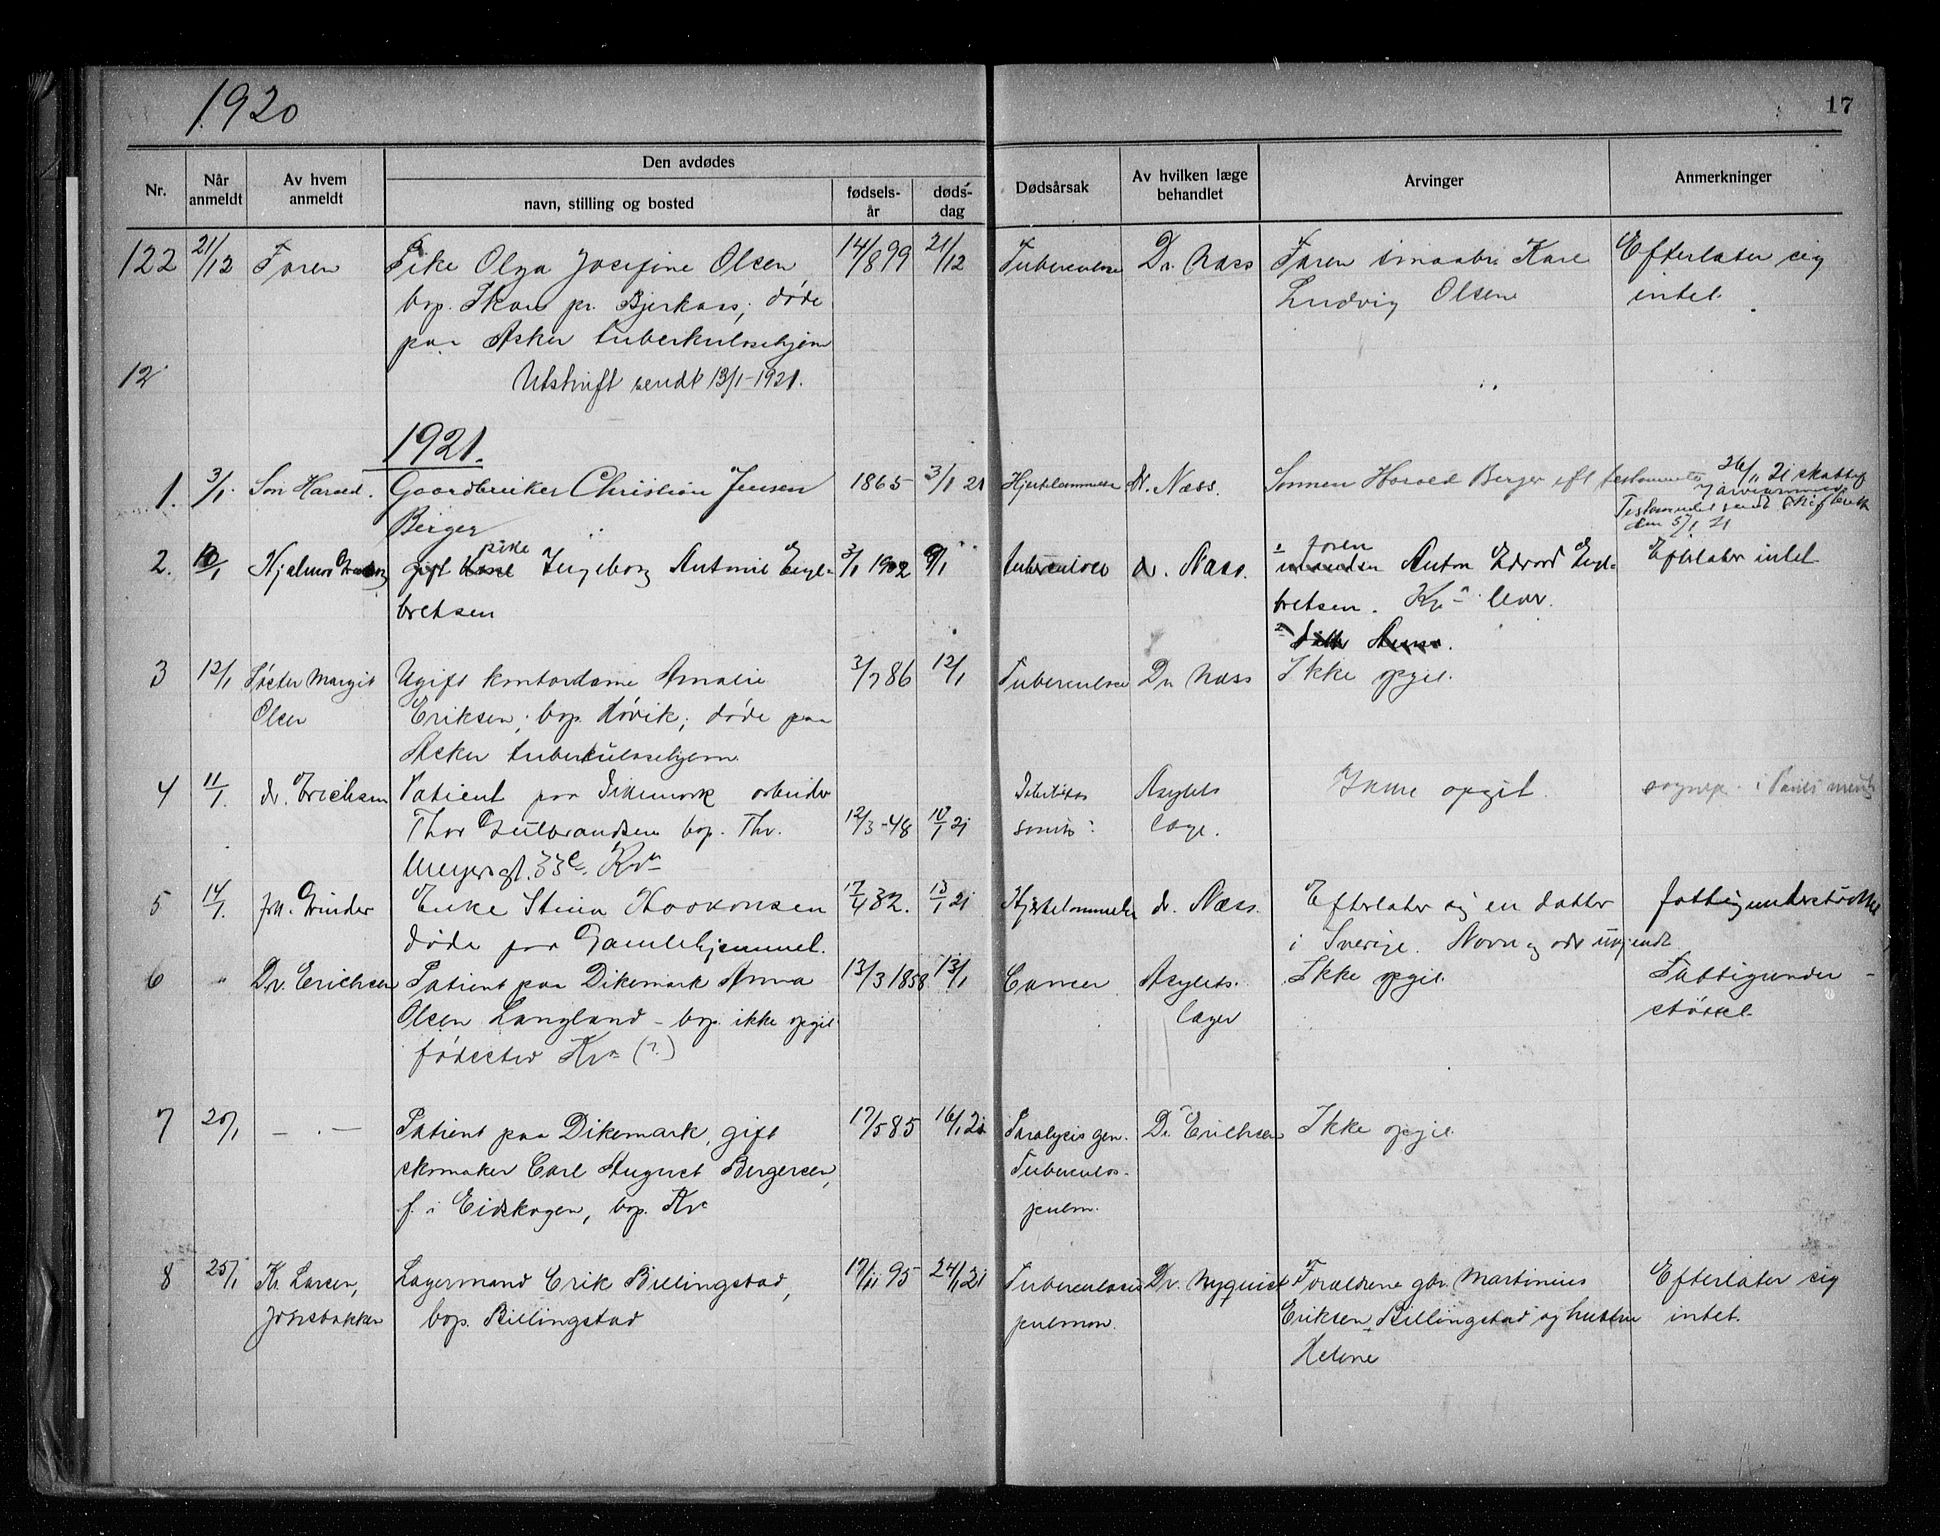 1920
17
Nr. Når anmeldt Av hvem anmeldt Den avdødes navn, stilling og bosted fødsels-år døds-dag Dødsårsak Av hvilken læge behandlet Arvinger Anmerkninger
122 21/12 Faren Pike Olga Josefine Olsen 14/8 99 21/12 Tuberculose Dr. Næss Faren smaabr. Karl Efterlater sig
bop. Skau pr. Bjerkaas; døde Ludvig Olsen intet.
paa Asker tuberkulosehjem
12 Utskrift sendt 13/1-1921.
1921.
1. 3/1. Søn Harald. Gaardbruker Christian Jensen 1865 3/1 21 Hjertelammelse dr. Næss. Sønnen Harald Berger eft testamente 26/1 21 skattefg
Berger Testamentet sendt skifterett
den 5/1 21
2. 10/1 Hjalmar gift kone pike Ingeborg Antonie Engl- 3/1 1902 9/1 tuberculose dr. Næss. 1 manden faren Anton Edvard Engl- Efterlater intet
bretsen bretsen. Kra lever.
2 datter Anna.
3 12/1 Søster Margit Ugift kontordame Amalie 3/7 86 12/1 Tuberculose Dr. Næss Ikke opgit.
Olsen Eriksen; bop. Høvik; døde paa
Asker tuberkulosehjem
4 11/1. dr. Erichsen Patient paa Dikemark arbeider Asylets Ikke opgit.
Thor Gulbrandsen bop. Thv. 12/3-48 10/1 21 læge.
Meyersgt. 33c. Kra
5 14/1. Joh. Grinder Enke Stina Haakonsen 17/4 32. 13/1 21 Hjertelammelse dr. Næss. Efterlater sig en datter fattigunderstøttelse
døde paa Gamlehjemmet. i Sverige. Navn og adr ukjendt
6 " Dr. Erichsen Patient paa Dikemark Anna 13/3 1858 13/1 Cancer Asylets Ikke opgit. Fattigunder-
Olsen Langland - bop. ikke opgit læger støttet.
fødested Kra (?)
7 20/1 — " — Patient paa Dikemark, gift 17/5 85 16/1 21 Paralysis gen. Dr. Erichsen Ikke opgit.
skomaker Carl August Bergersen, Tuberculos.
f. i Eidskogen, bop. Kra pulm.
8 25/1 K. Larsen, Lagermand Erik Billingstad, 17/11 95 24/1 21 Tuberculosis Dr. Nyquist Forældrene gbr. Martinius Efterlater sig
Jonsbakken bop. Billingstad pulmon. Eriksen Billingstad og hustru intet.
Helene